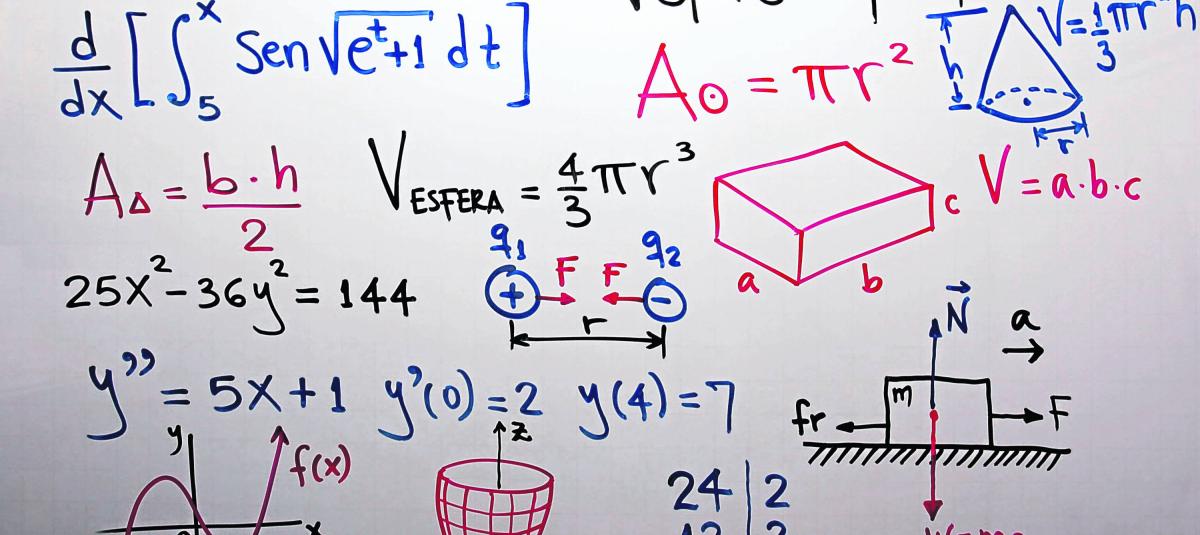 d/dx [∫₅ˣ Sen √(eᵗ+1) dt]
A⊙ = πr²
V=1/3 πr²h
h
r
A△ = b·h/2
V ESFERA = 4/3 πr³
V=a·b·c
c
a
b
25x²-36y²=144
q₁ q₂
+ F F -
r
y''=5x+1 y'(0)=2 y(4)=7
N⃗
a
m
fr
F
y
f(x)
x
z
24|2